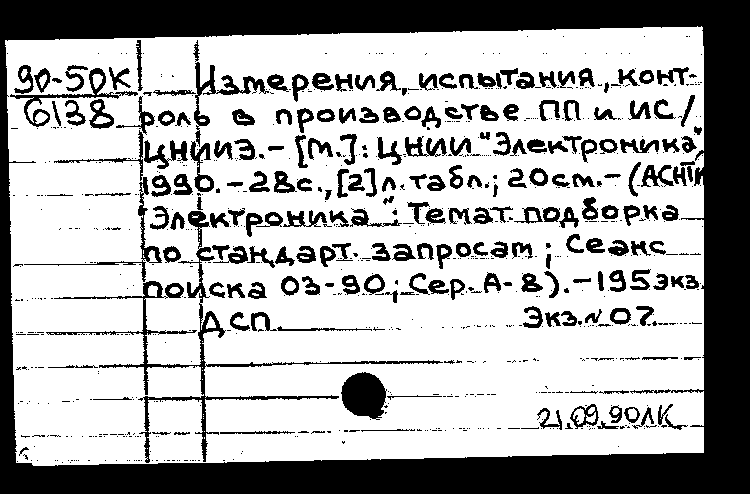 90-50К
6138
Измерения, испытания, конт-
роль в производстве ПП и ИС /
ЦНИИЭ.- [М.]: ЦНИИ "Электроника",
1990.-28с.,[2]л.табл.; 20см.-(АСНТИ
"Электроника": Темат. подборка
по стандарт. запросам; Сеанс
поиска 03-90; Сер. А-8).-195экз.
ДСП. Экз.№07.
21.09.90ЛК